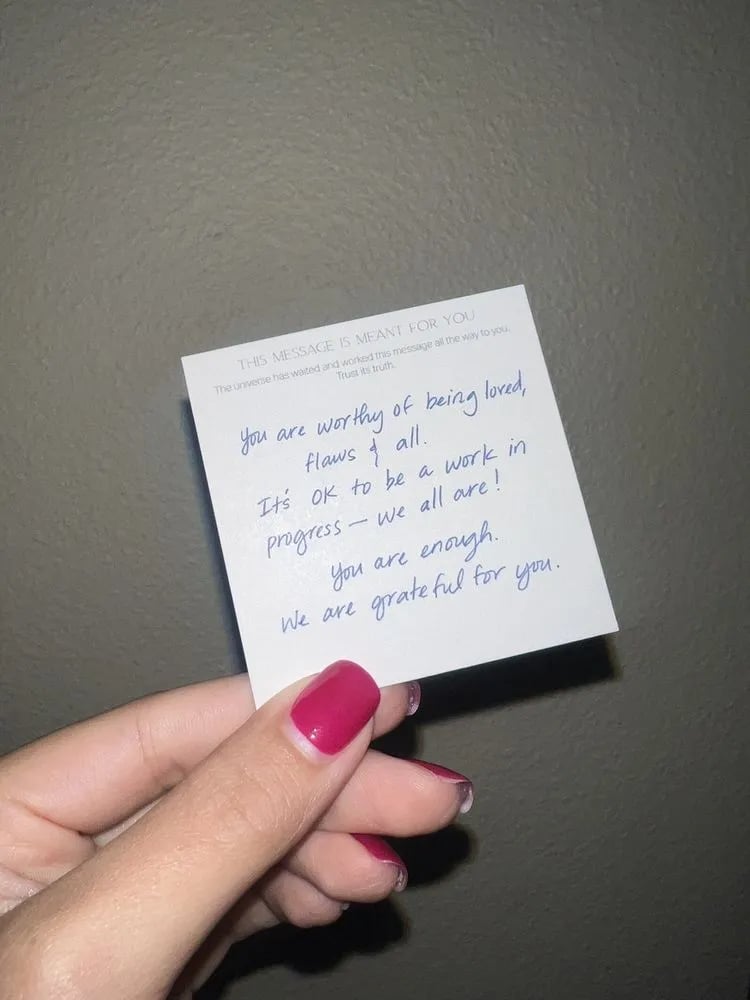 THIS MESSAGE IS MEANT FOR YOU
The universe has waited and worked this message all the way to you.
Trust its truth.
You are worthy of being loved,
flaws & all.
It's OK to be a work in
progress — we all are!
You are enough.
We are grateful for you.